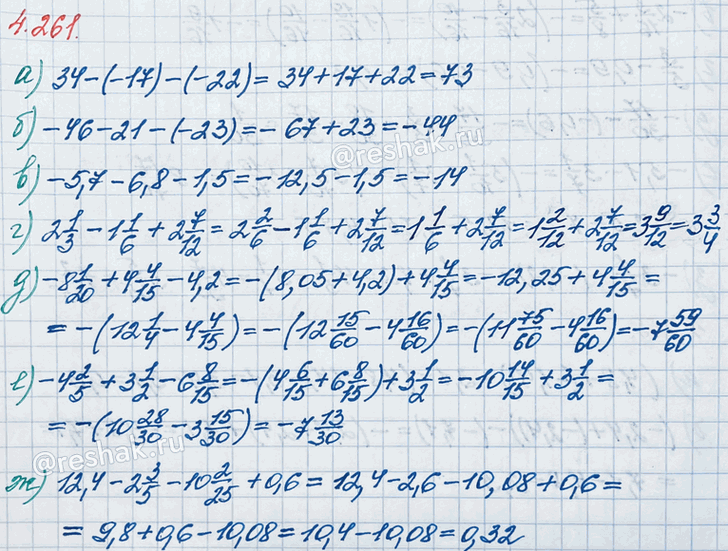 4.261.
а) 34-(-17)-(-22)= 34+17+22=73
б) -46-21-(-23)=-67+23=-44
@reshak.ru
в) -5,7-6,8-1,5=-12,5-1,5=-14
г) 2 1/3 - 1 1/6 + 2 7/12 = 2 2/6 - 1 1/6 + 2 7/12 = 1 1/6 + 2 7/12 = 1 2/12 + 2 7/12 = 3 9/12 = 3 3/4
д) -8 1/20 + 4 4/15 - 4,2 = -(8,05+4,2)+4 4/15 = -12,25+4 4/15 =
= -(12 1/4 - 4 4/15) = -(12 15/60 - 4 16/60) = -(11 75/60 - 4 16/60) = -7 59/60
е) -4 2/5 + 3 1/2 - 6 8/15 = -(4 6/15 + 6 8/15) + 3 1/2 = -10 14/15 + 3 1/2 =
= -(10 28/30 - 3 15/30) = -7 13/30
@reshak.ru
ж) 12,4 - 2 3/5 - 10 2/25 + 0,6 = 12,4-2,6-10,08+0,6=
= 9,8+0,6-10,08=10,4-10,08=0,32